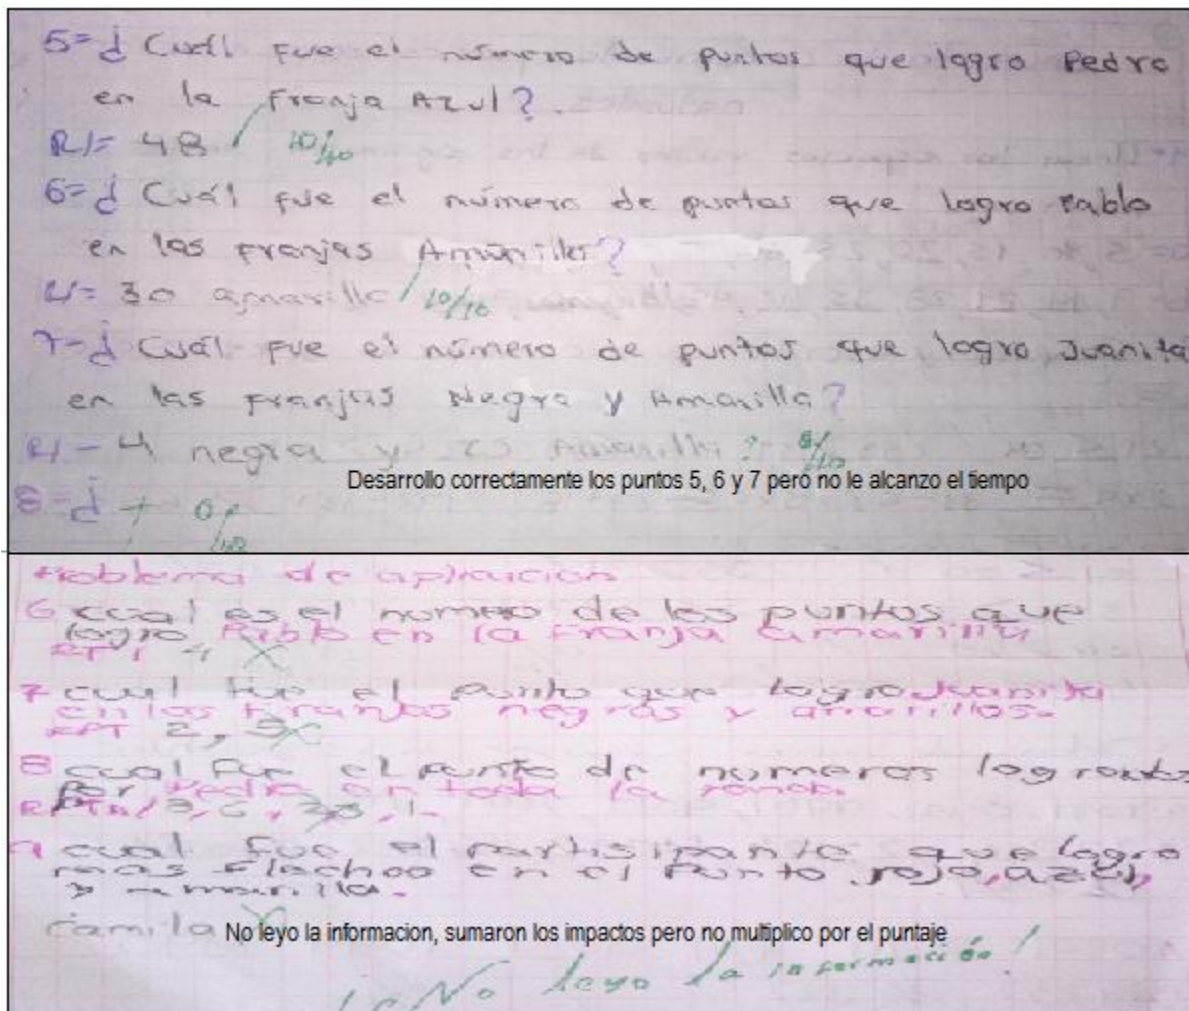 5= ¿ Cuál fue el número de puntos que logro Pedro
en la Franja Azul?
R/= 48 10/10
6= ¿ Cuál fue el número de puntos que logro Pablo
en las franjas Amarillas?
R/= 30 amarilla 10/10
7= ¿ Cuál fue el número de puntos que logro Juanita
en las franjas Negra y Amarilla?
R/ = 4 negra y Amarilla
Desarrollo correctamente los puntos 5, 6 y 7 pero no le alcanzo el tiempo
8= ¿ 0/10
Problema de aplicacion
6 cual es el numero de los puntos que
logro Pablo en la franja amarilla
RPT 4
7 cual fue el punto que logro Juanita
en las franjas negras y amarillas.
RPT 2, 5
8 cual fue el punto de numeros logrados
por Pedro en toda la ronda.
9 cual fue el partisipante que logro
mas flechas en el punto rojo, azul,
y amarilla.
Camila
No leyo la informacion, sumaron los impactos pero no multiplico por el puntaje
No leyo la información!